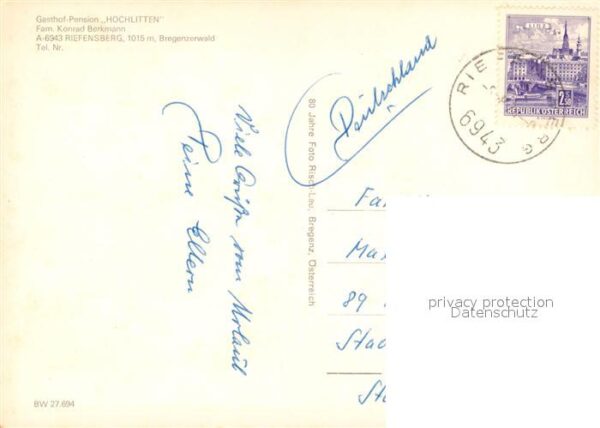 Gasthof-Pension „HOCHLITTEN"
Fam. Konrad Berkmann
A-6943 RIEFENSBERG, 1015 m, Bregenzerwald
Tel. Nr.
Viele Grüße vom Urlaub
Deine Eltern
BW 27.694
80 Jahre Foto Risch-Lau, Bregenz, Österreich
Deutschland
LINZ
2.50
REPUBLIK ÖSTERREICH
RIE
RG
6943
Fa
Max
89
Stad
Sta
privacy protection
Datenschutz